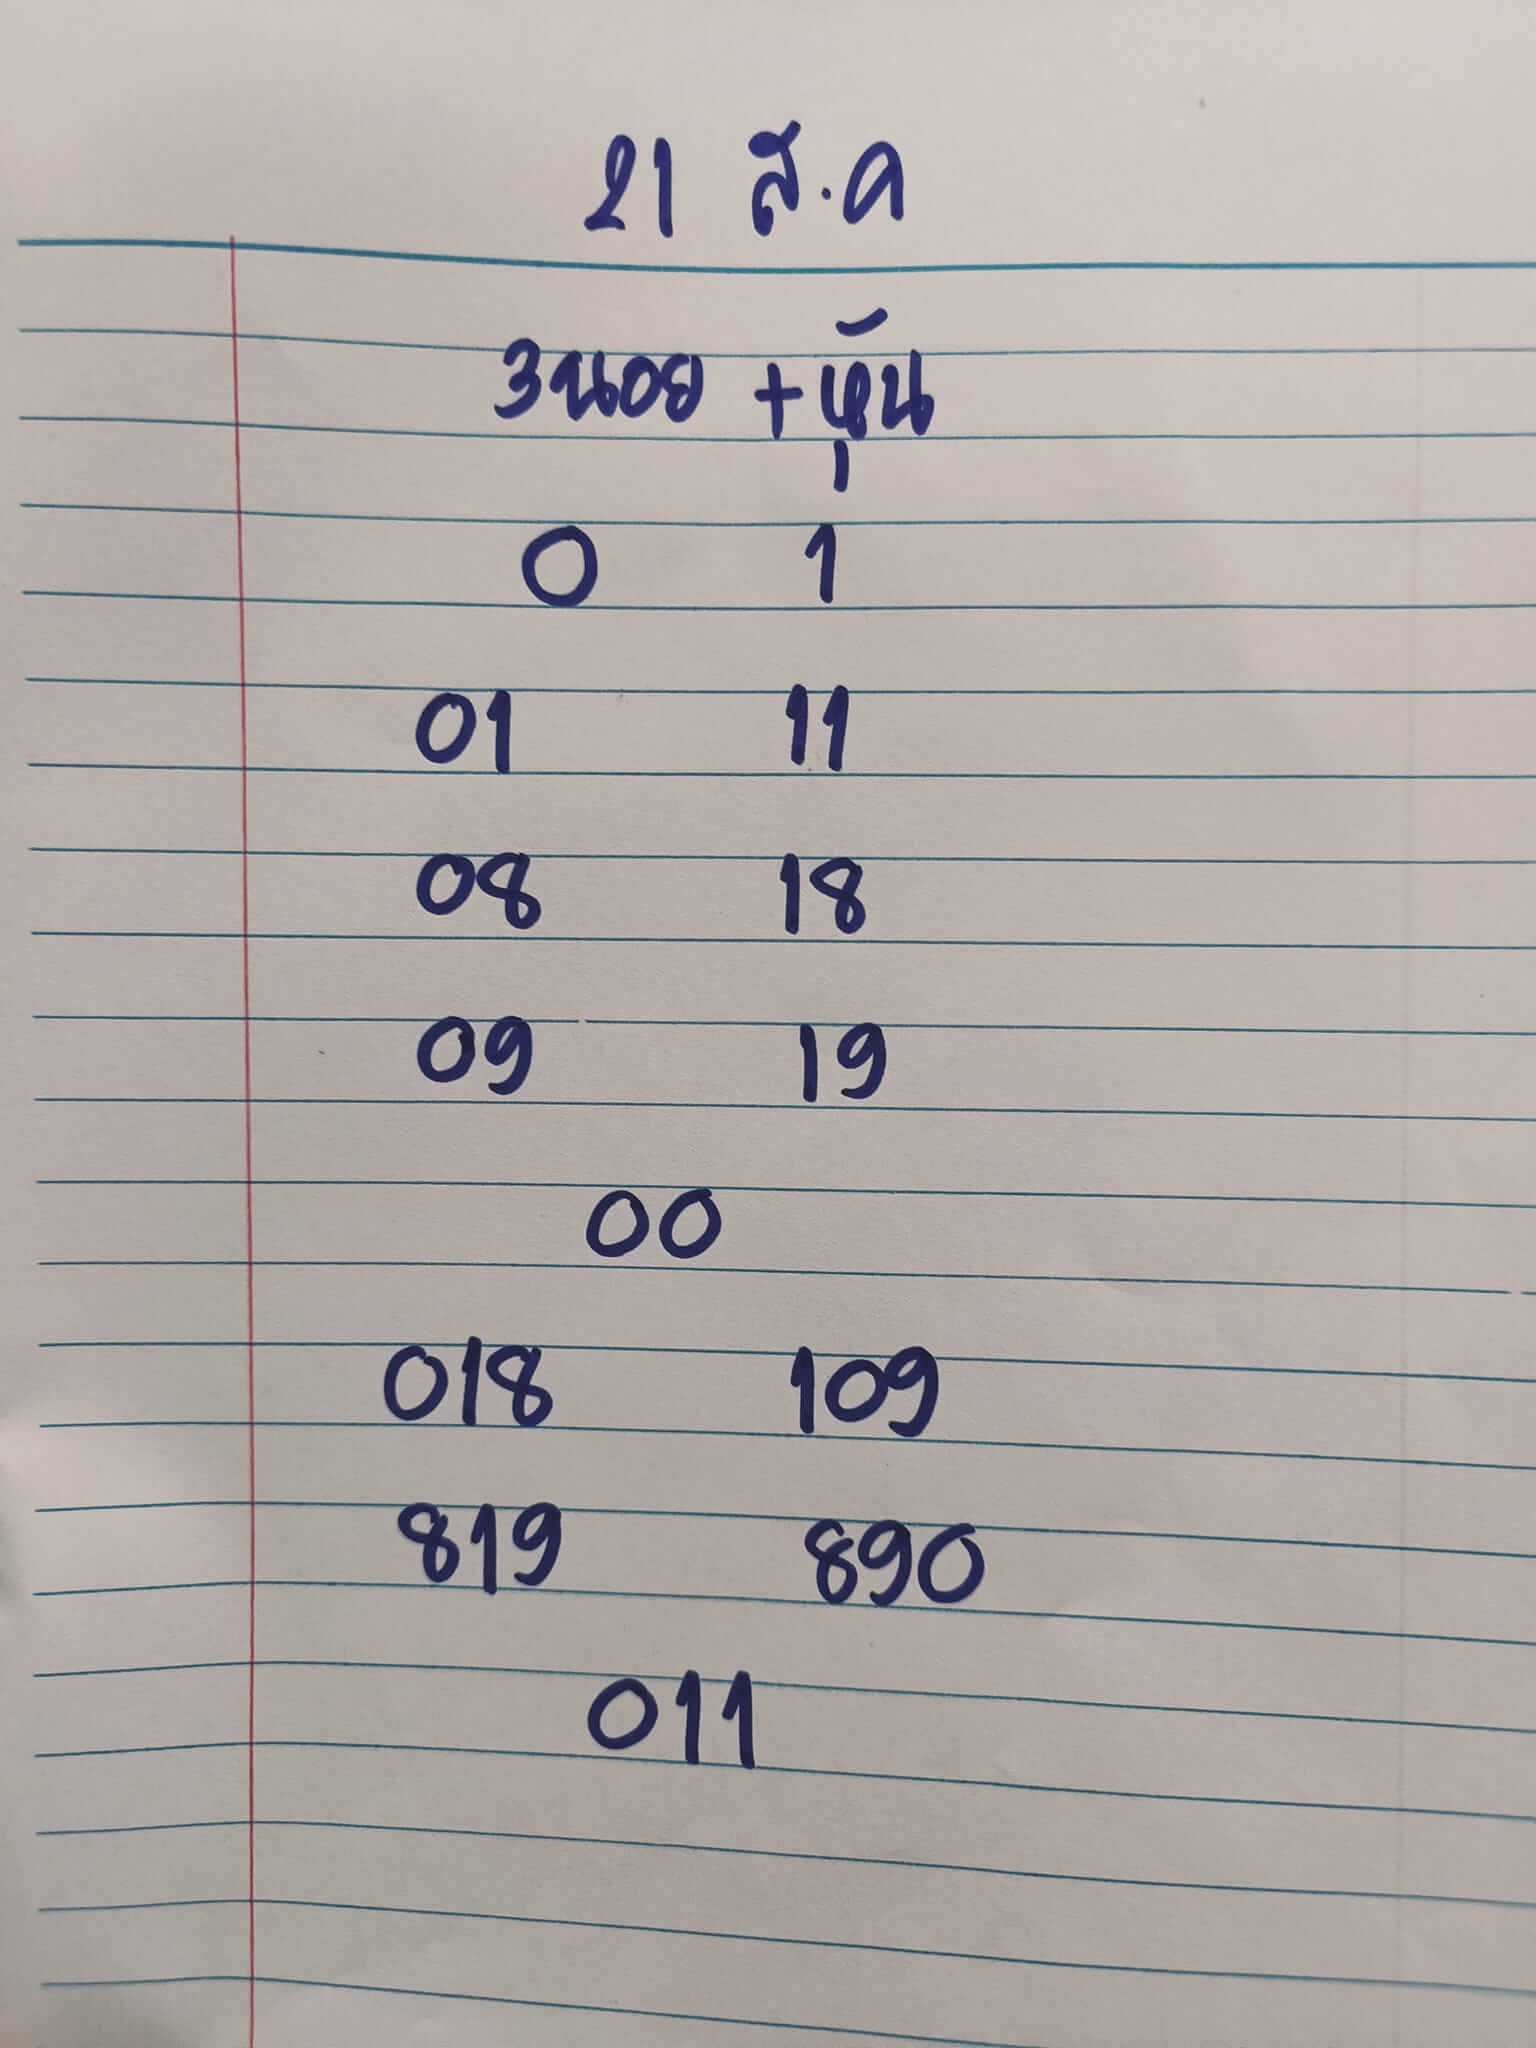 21 ส.ค
3นอย + หุ้น
0 1
01 11
08 18
09 19
00
018 109
819 890
011